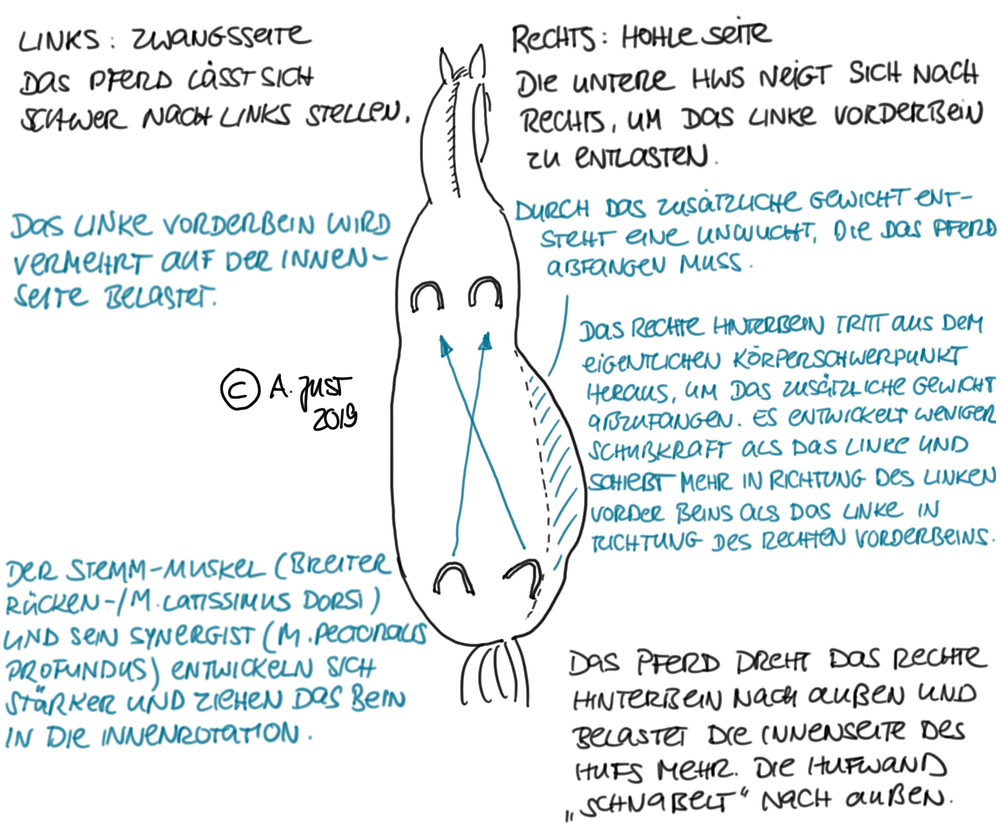 LINKS: ZWANGSSEITE
DAS PFERD LÄSST SICH
SCHWER NACH LINKS STELLEN.
RECHTS: HOHLE SEITE
DIE UNTERE HWS NEIGT SICH NACH
RECHTS, UM DAS LINKE VORDERBEIN
ZU ENTLASTEN.
DAS LINKE VORDERBEIN WIRD
VERMEHRT AUF DER INNEN-
SEITE BELASTET.
DURCH DAS ZUSÄTZLICHE GEWICHT ENT-
STEHT EINE UNWUCHT, DIE DAS PFERD
ABFANGEN MUSS.
DAS RECHTE HINTERBEIN TRITT AUS DEM
EIGENTLICHEN KÖRPERSCHWERPUNKT
HERAUS, UM DAS ZUSÄTZLICHE GEWICHT
ABZUFANGEN. ES ENTWICKELT WENIGER
SCHUBKRAFT ALS DAS LINKE UND
SCHIEBT MEHR IN RICHTUNG DES LINKEN
VORDER BEINS ALS DAS LINKE IN
RICHTUNG DES RECHTEN VORDERBEINS.
© A. JUST
2019
DER STEMM-MUSKEL (BREITER
RÜCKEN-/M. LATISSIMUS DORSI)
UND SEIN SYNERGIST (M. PECTORALIS
PROFUNDUS) ENTWICKELN SICH
STÄRKER UND ZIEHEN DAS BEIN
IN DIE INNENROTATION.
DAS PFERD DREHT DAS RECHTE
HINTERBEIN NACH AUßEN UND
BELASTET DIE INNENSEITE DES
HUFS MEHR. DIE HUFWAND
„SCHNABELT" NACH AUßEN.